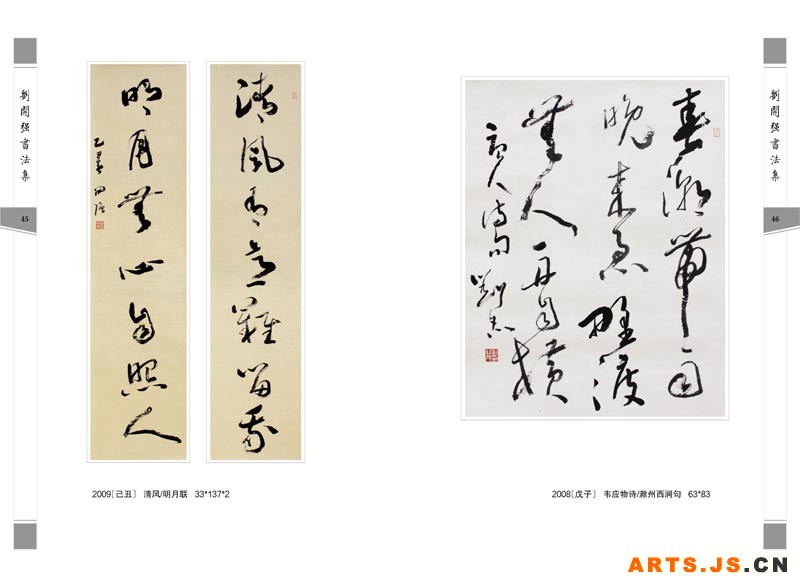 劉開强書法集
45
清風有意難留我
明月無心自照人
2009[己丑] 清风/明月联 33*137*2
春潮帶雨
晚來急野渡
無人舟自橫
唐人詩句
2008[戊子] 韦应物诗/滁州西涧句 63*83
劉開强書法集
46
ARTS.JS.CN